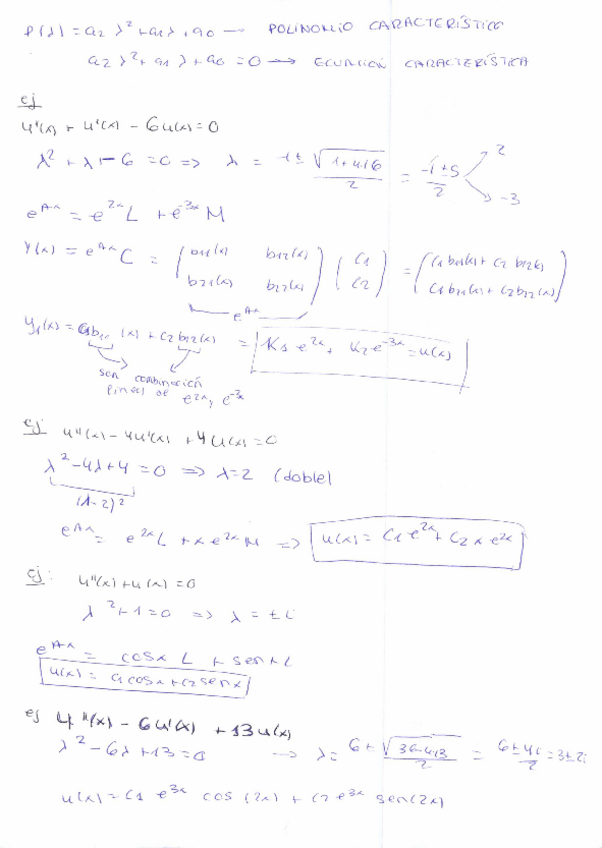 P(λ) = a2 λ² + a1 λ + a0 → POLINOMIO CARACTERÍSTICO
a2 λ² + a1 λ + a0 = 0 → ECUACIÓN CARACTERÍSTICA
ej
u''(x) + u'(x) - 6u(x) = 0
λ² + λ - 6 = 0 => λ = (-1 ± √(1+4·6))/2 = (-1 ± 5)/2 → 2 → -3
e^{Ax} = e^{2x} L + e^{-3x} M
Y(x) = e^{Ax} C = (b11(x) b12(x) / b21(x) b22(x)) (C1 / C2) = (C1 b11(x) + C2 b12(x) / C1 b21(x) + C2 b22(x))
e^{Ax}
y1(x) = C1 b11(x) + C2 b12(x) = K1 e^{2x} + K2 e^{-3x} = u(x)
son combinación
lineal de e^{2x} y e^{-3x}
ej u''(x) - 4u'(x) + 4u(x) = 0
λ² - 4λ + 4 = 0 => λ = 2 (doble)
(λ-2)²
e^{Ax} = e^{2x} L + x e^{2x} M => u(x) = C1 e^{2x} + C2 x e^{2x}
ej: u''(x) + u(x) = 0
λ² + 1 = 0 => λ = ± i
e^{Ax} = cosx L + senx L
u(x) = C1 cosx + C2 senx
ej u''(x) - 6u'(x) + 13u(x)
λ² - 6λ + 13 = 0 → λ = (6 ± √(36-4·13))/2 = (6 ± 4i)/2 = 3 ± 2i
u(x) = C1 e^{3x} cos(2x) + C2 e^{3x} sen(2x)